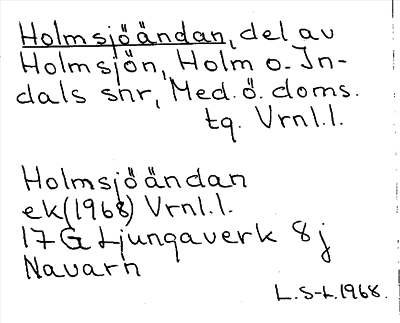 Holmsjöändan, del av
Holmsjön, Holm o. In-
dals snr, Med. ö. doms.
tg. Vrnl.l.
Holmsjöändan
ek(1968) Vrnl.l.
17 G Ljungaverk 8j
Navarn
L.S-L.1968.